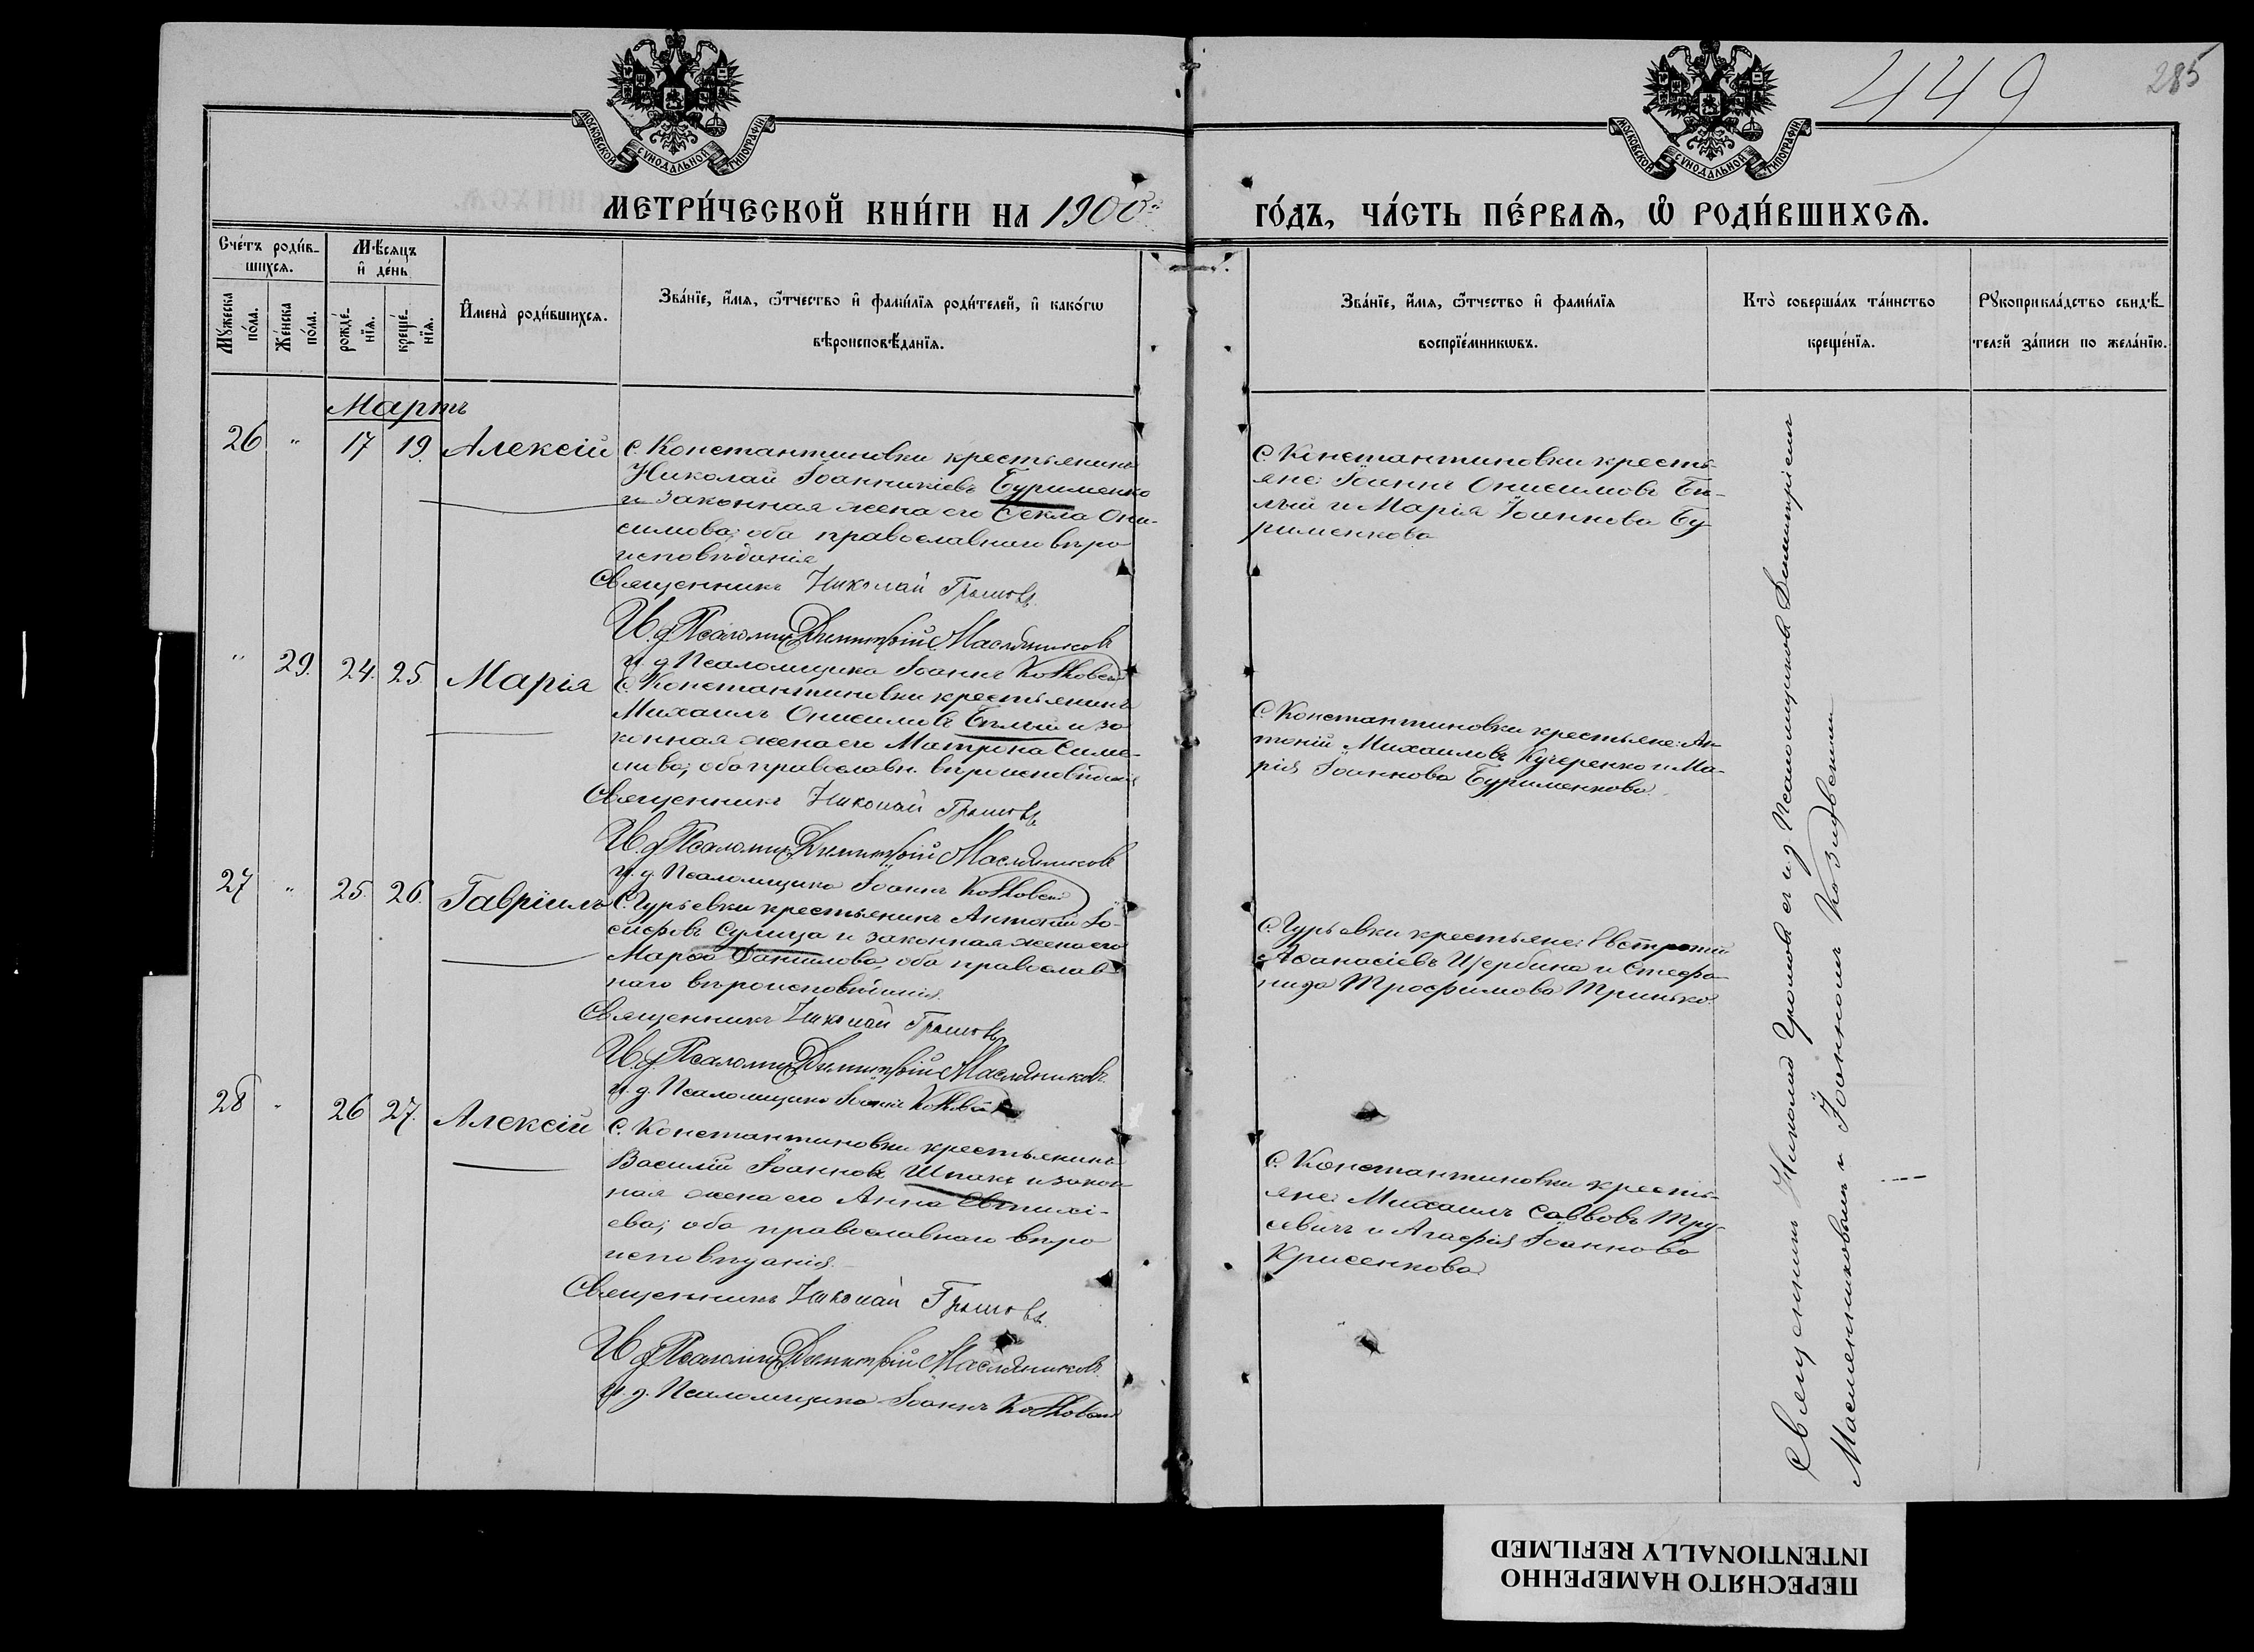 МОСКОВСКОЙ СУНОДАЛЬНОЙ ТИПОГРАФІИ
МОСКОВСКОЙ СУНОДАЛЬНОЙ ТИПОГРАФІИ
449
285
МЕТРИ́ЧЕСКОЙ КНИ́ГИ НА 1900
ГО́ДЪ, ЧА́СТЬ ПЕ́РВАѦ, Ѡ҆ РОДИ́ВШИХСѦ.
Сче́тъ роди́в-
шихсѧ.
Мꙋжеска по́ла.
Же́нска по́ла.
Мѣ́сѧцъ
и҆ де́нь
рожде́-
нїѧ.
креще́-
нїѧ.
И҆мена̀ роди́вшихсѧ.
Зва́нїе, и҆́мѧ, ѻ҆́тчество и҆ фами́лїѧ роди́телей, и҆ како́гѡ
вѣроисповѣ́данїѧ.
Зва́нїе, и҆́мѧ, ѻ҆́тчество и҆ фами́лїѧ
воспрїе́мникѡвъ.
Кто̀ соверша́лъ та́инство
креще́нїѧ.
Рꙋкоприкла́дство свидѣ́-
телей за́писи по жела́нїю.
Мартъ
26 " 17 19. Алексій
с. Константиновки крестьянинъ
Николай Іоанникіевъ Бурименко
и законная жена его Ѳекла Они-
симова; оба православнаго вѣро
исповѣданія
Священникъ Николай Громовъ.
И. д. Псаломщ. Димитрій Масляниковъ
и. д. Псаломщика Іоаннъ
С Константиновки кресть-
яне: Іоаннъ Онисимовъ Бѣ-
лый и Марія Іоаннова Бу-
рименкова
" 29. 24. 25 Марія
С. Константиновки крестьянинъ
Михаилъ Онисимовъ Бѣлый и за
конная жена его Матрона Симе-
онова; оба православн. вѣроисповѣданія
Священникъ Николай Громовъ
И. д. Псаломщ. Димитрій Масляниковъ
и. д. Псаломщика Іоаннъ
С. Константиновки крестьяне: Ан-
тоній Михаиловъ Кучеренко и Ма-
рія Іоаннова Бурименкова.
27 " 25. 26. Гавріилъ
С. Гурьевки крестьянинъ Антоній Іо-
сифовъ Сулица и законная жена его
Марѳа Данилова, оба православ-
наго вѣроисповѣданія.
Священникъ Николай Громовъ
И. д. Псаломщ. Димитрій Масляниковъ
и. д. Псаломщика Іоаннъ
С. Гурьевки крестьяне: Евстратій
Аѳанасіевъ Щербина и Стефа-
нида Трофимова Тринько.
28 " 26 27. Алексій
С. Константиновки крестьянинъ
Василій Іоанновъ Шпакъ и закон
ная жена его Анна Евтихі-
ева; оба православнаго вѣро
исповѣданія.
Священникъ Николай Громовъ.
И. д. Псаломщ. Димитрій Масляниковъ
и. д. Псаломщика Іоаннъ
С. Константиновки кресть-
яне: Михаилъ Саввовъ Тру-
севичъ и Агафія Іоаннова
Крисенкова.
Священникъ Николай Громовъ съ и. д. Псаломщиковъ Димитріемъ
Масленниковымъ и Іоанномъ Козловскимъ
ПЕРЕСНЯТО НАМЕРЕННО
INTENTIONALLY REFILMED